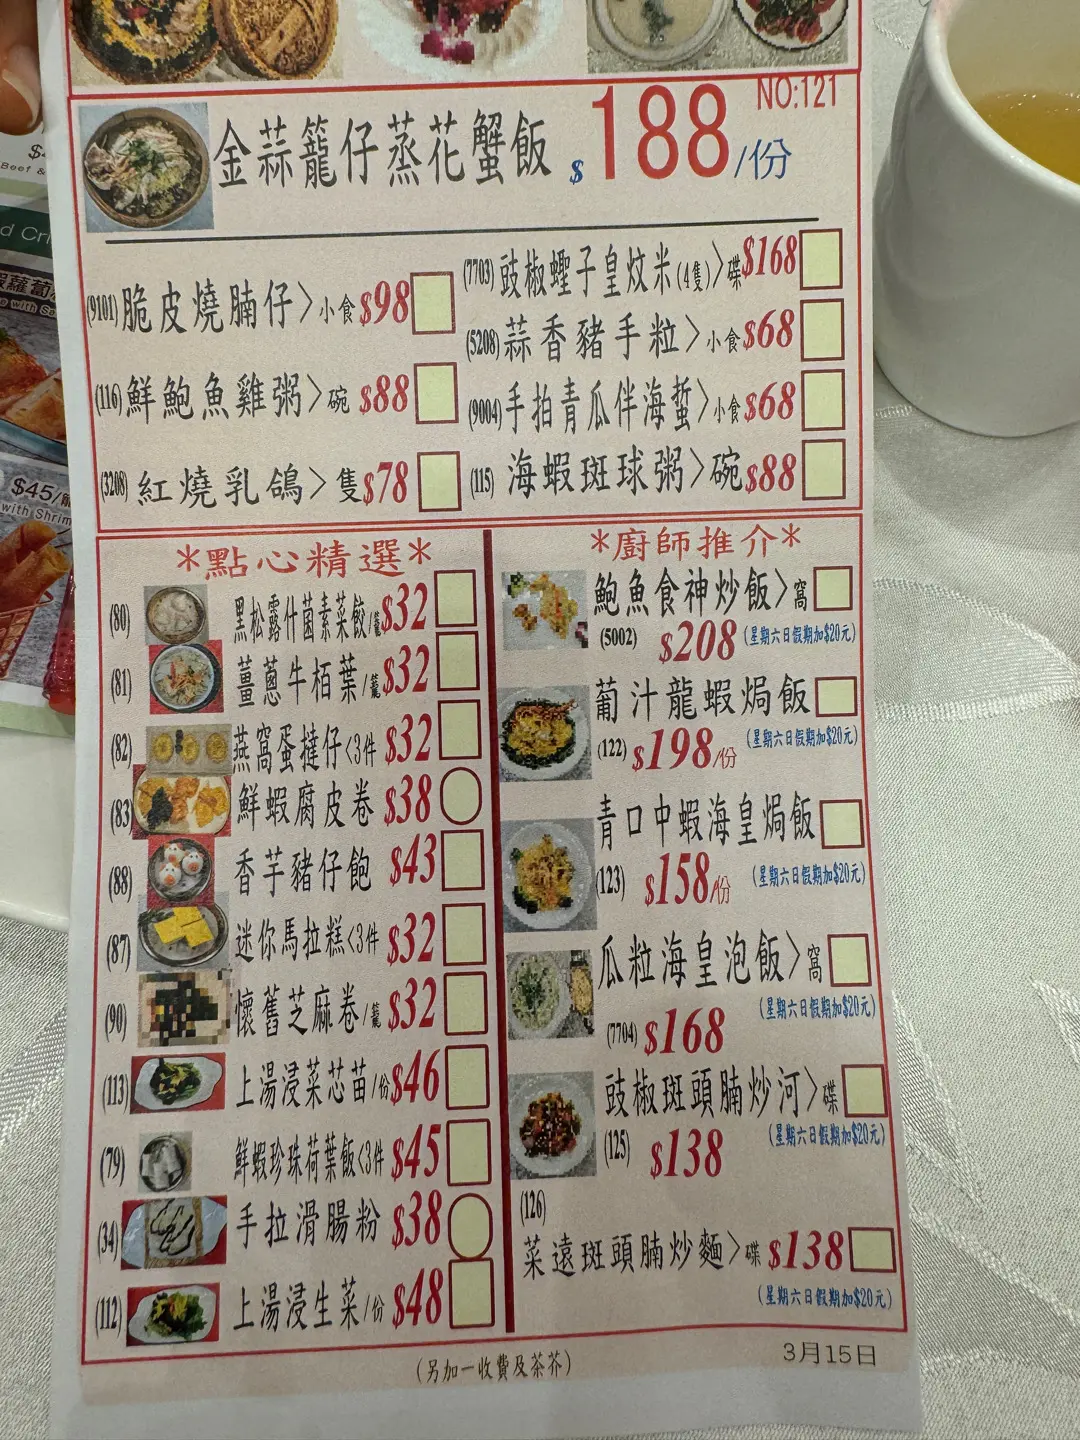 NO:121
金蒜籠仔蒸花蟹飯 $188/份
(9101)脆皮燒腩仔>小食$98
(116)鮮鮑魚雞粥>碗 $88
(3208)紅燒乳鴿>隻$78
(7703)豉椒蟶子皇炆米(4隻)>碟$168
(5208)蒜香豬手粒>小食$68
(9004)手拍青瓜伴海蜇>小食$68
(115)海蝦斑球粥>碗$88
*點心精選*
(80) 黑松露什菌素菜餃/籠$32
(81) 薑蔥牛栢葉/籠$32
(82) 燕窩蛋撻仔<3件 $32
(83) 鮮蝦腐皮卷 $38
(88) 香芋豬仔飽 $43
(87) 迷你馬拉糕<3件 $32
(90) 懷舊芝麻卷/籠$32
(113) 上湯浸菜芯苗/份$46
(79) 鮮蝦珍珠荷葉飯<3件 $45
(34) 手拉滑腸粉 $38
(112) 上湯浸生菜/份$48
*廚師推介*
鮑魚食神炒飯>窩
(5002) $208 (星期六日假期加$20元)
葡汁龍蝦焗飯
(122) $198/份 (星期六日假期加$20元)
青口中蝦海皇焗飯
(123) $158/份 (星期六日假期加$20元)
瓜粒海皇泡飯>窩
(星期六日假期加$20元)
(7704) $168
豉椒斑頭腩炒河>碟
(125) $138 (星期六日假期加$20元)
(126)
菜遠斑頭腩炒麵>碟 $138
(星期六日假期加$20元)
(另加一收費及茶芥)
3月15日
Beef &
d Cr
蝦蘿蔔
with S
$45/
with Shrim